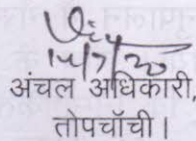 14/7/20
अंचल अधिकारी,
तोपचाँची।